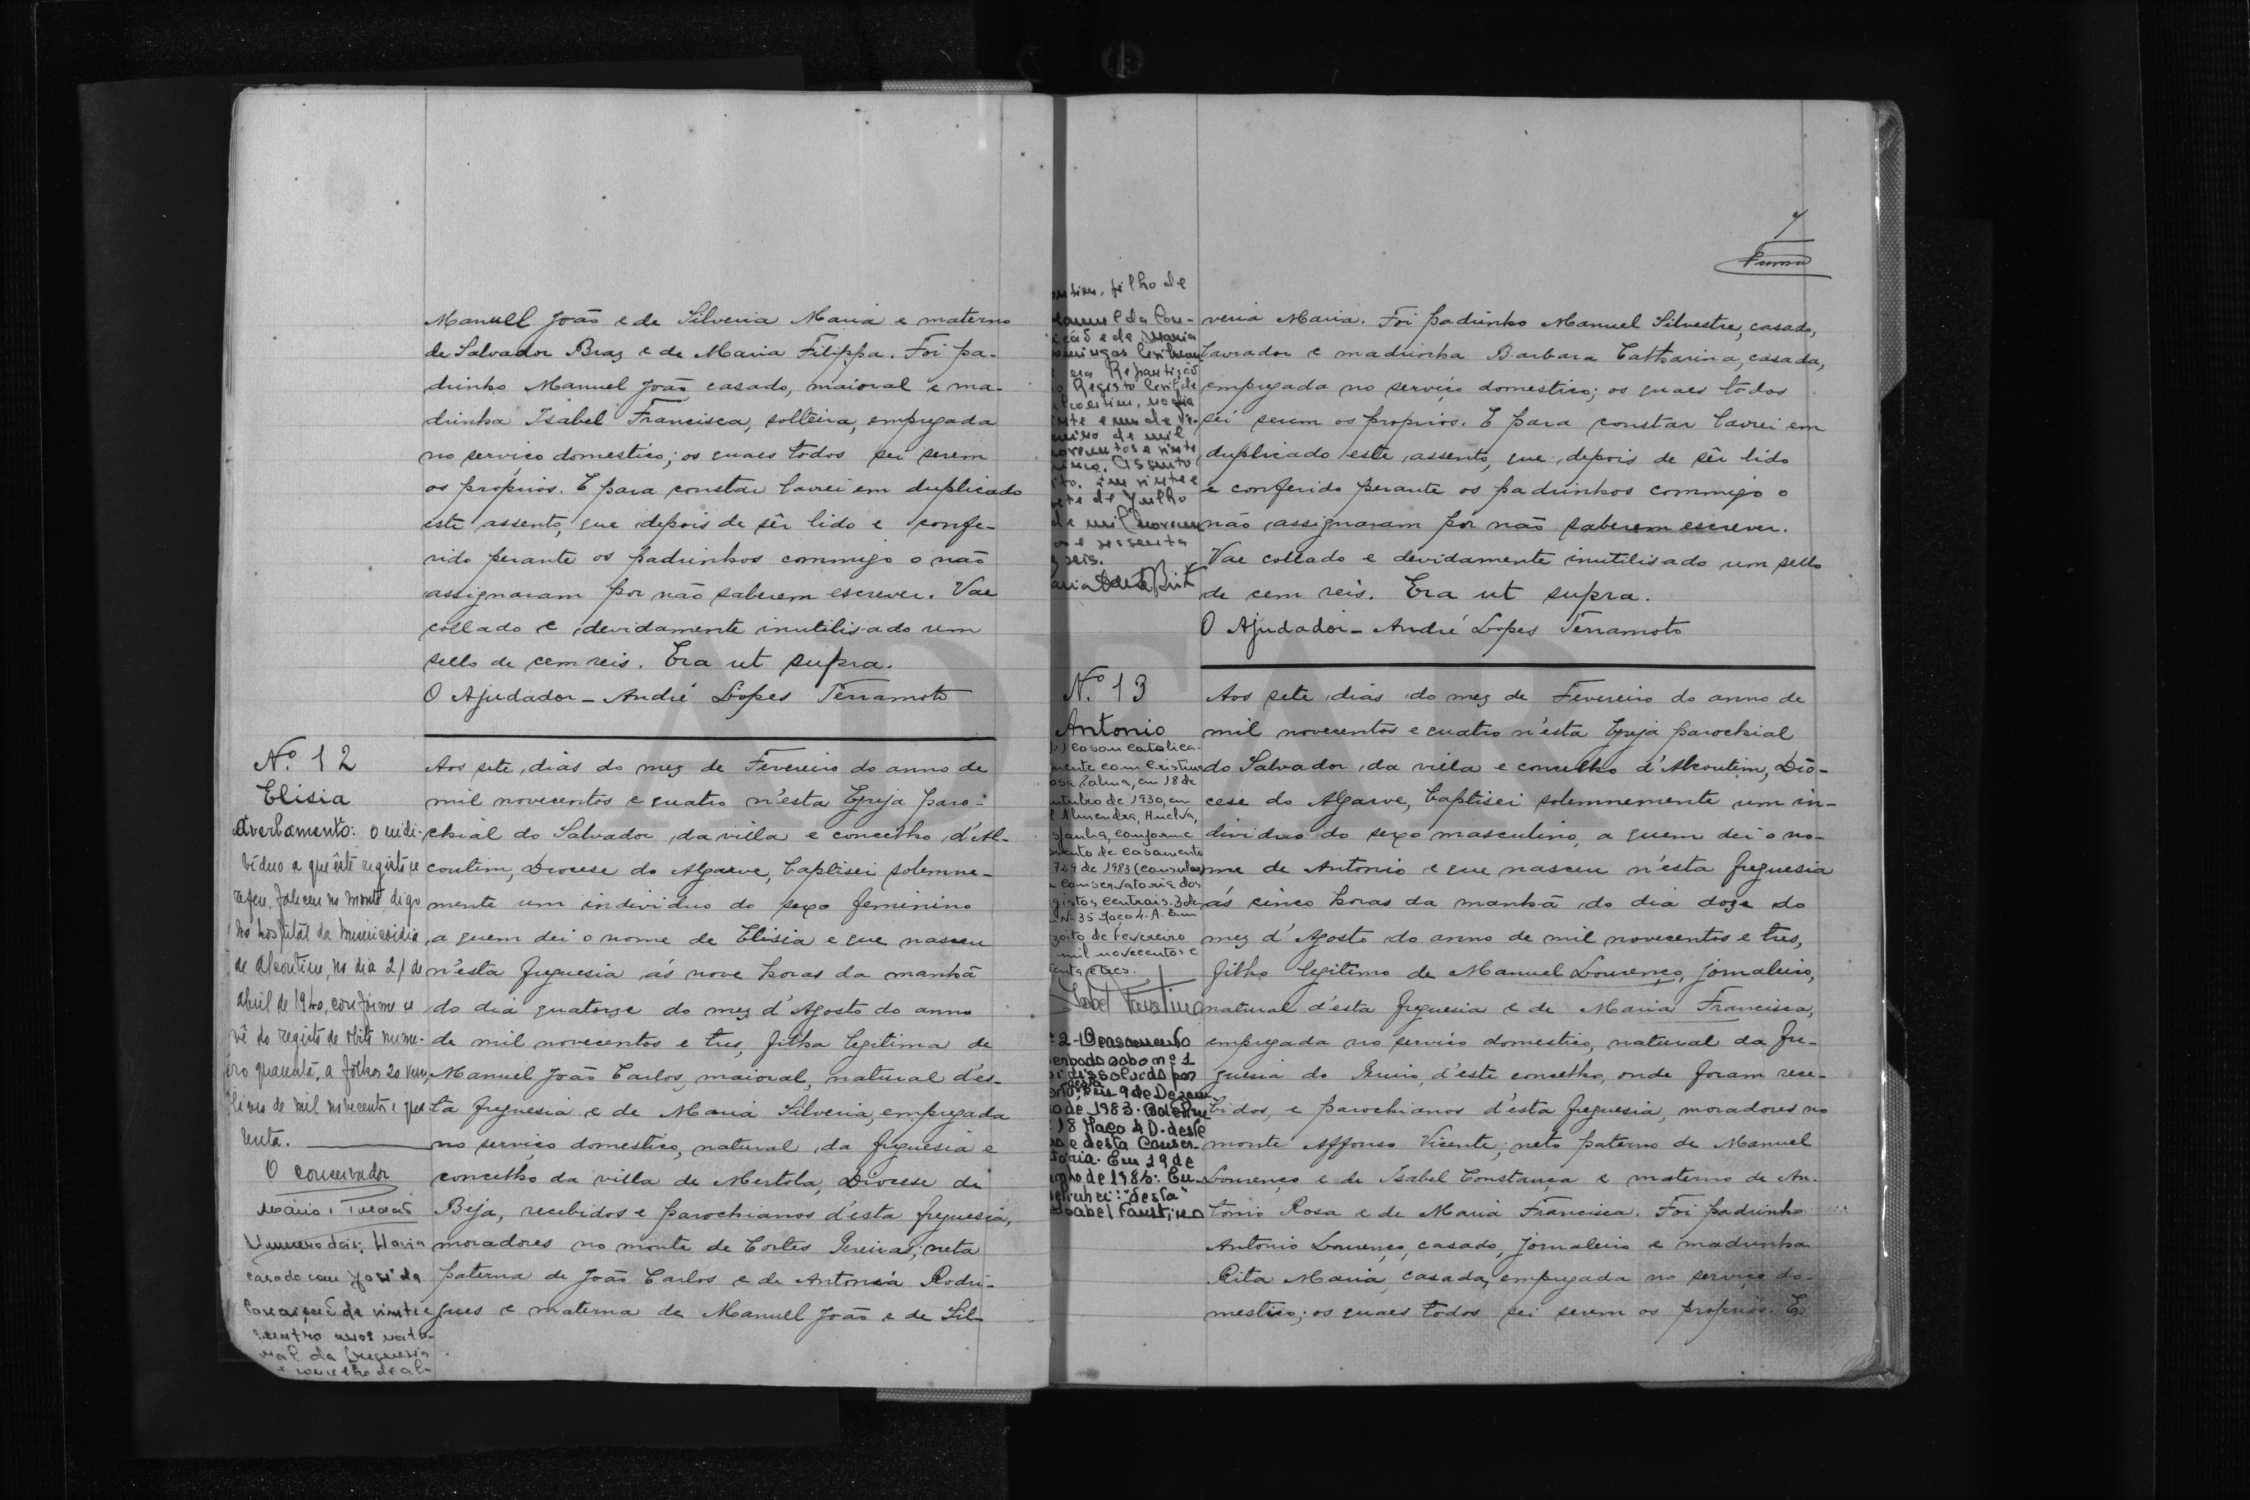 Manuel João e de Silveria Maria e materno
de Salvador Braz e de Maria Filippa. Foi pa-
drinho Manuel João casado, maioral e ma-
drinha Isabel Francisca, solteira, empregada
no serviço domestico; os quaes todos sei serem
os proprios. E para constar lavrei em duplicado
este assento, que depois de sêr lido e confe-
rido perante os padrinhos commigo o não
assignaram por não saberem escrever. Vae
collado e devidamente inutilisado um
sello de cem reis. Era ut supra.
O Ajudador - André Lopes Terramoto
Nº 12
Elisia
Averbamento: O indi-
viduo a que êste registo se
refere, faleceu no monte, digo
no hospital da Misericordia
de Alcoutim, no dia 21 de
Abril de 1940, conforme se
vê do registo de obito nume-
ro quarenta, a folhas 20 verso,
livro de mil novecentos e qua
renta.
O Conservador
Numero dois: Havia
casado com José da
Conceição de vinte e
quatro anos natu-
ral da freguesia
e concelho de Al-
Aos sete dias do mez de Fevereiro do anno de
mil novecentos e quatro n'esta Egreja paro-
chial do Salvador da villa e concelho d'Al-
coutim, Diocese do Algarve, baptisei solemne-
mente um individuo do sexo feminino
a quem dei o nome de Elisia e que nasceu
n'esta freguesia ás nove horas da manhã
do dia quatorze do mez d'Agosto do anno
de mil novecentos e tres, filha legitima de
Manuel João Carlos, maioral, natural d'es-
ta freguesia e de Maria Silveria, empregada
no serviço domestico, natural da freguesia e
concelho da villa de Mertola, Diocese de
Beja, recebidos e parochianos d'esta freguesia,
moradores no monte de Cortes Pereiras; neta
paterna de João Carlos e de Antonia Rodri-
gues e materna de Manuel João e de Sil-
7
filho de
da Con-
e de Maria
Repartição
Registo Civil de
de mil
Assento
de Julho
de mil novecen
e sessenta
seis.
veria Maria. Foi padrinho Manuel Silvestre, casado,
lavrador e madrinha Barbara Catharina, casada,
empregada no serviço domestico; os quaes todos
sei serem os proprios. E para constar lavrei em
duplicado este assento, que depois de sêr lido
e conferido perante os padrinhos commigo o
não assignaram por não saberem escrever.
Vae collado e devidamente inutilisado um sello
de cem reis. Era ut supra.
O Ajudador - André Lopes Terramoto
Nº 13
Antonio
casou catolica-
mente com
em 18 de
de 1930, em
Almendra, Huelva,
conforme
de casamento
de 1983
Conservatoria dos
Centrais.
de Fevereiro
mil novecentos e
Isabel Faustino
2 - O casamento
sob o nº 1
dissolvido por
em 9 de Dezem
de 1983.
Maço 4 D. deste
e desta Conser-
Em 19 de
de 1986.
"desta"
Isabel Faustino
Aos sete dias do mez de Fevereiro do anno de
mil novecentos e quatro n'esta Egreja parochial
do Salvador da villa e concelho d'Alcoutim, Dio-
cese do Algarve, baptisei solemnemente um in-
dividuo do sexo masculino, a quem dei o no-
me de Antonio e que nasceu n'esta freguesia
ás cinco horas da manhã do dia doze do
mez d'Agosto do anno de mil novecentos e tres,
filho legitimo de Manuel Lourenço, jornaleiro,
natural d'esta freguesia e de Maria Francisca,
empregada no serviço domestico, natural da fre-
guesia do Pereiro, d'este concelho, onde foram rece-
bidos, e parochianos d'esta freguesia, moradores no
monte Affonso Vicente; neto paterno de Manuel
Lourenço e de Isabel Constança e materno de An-
tonio Rosa e de Maria Francisca. Foi padrinho
Antonio Lourenço, casado, jornaleiro e madrinha
Rita Maria, casada, empregada no serviço do-
mestico; os quaes todos sei serem os proprios. E